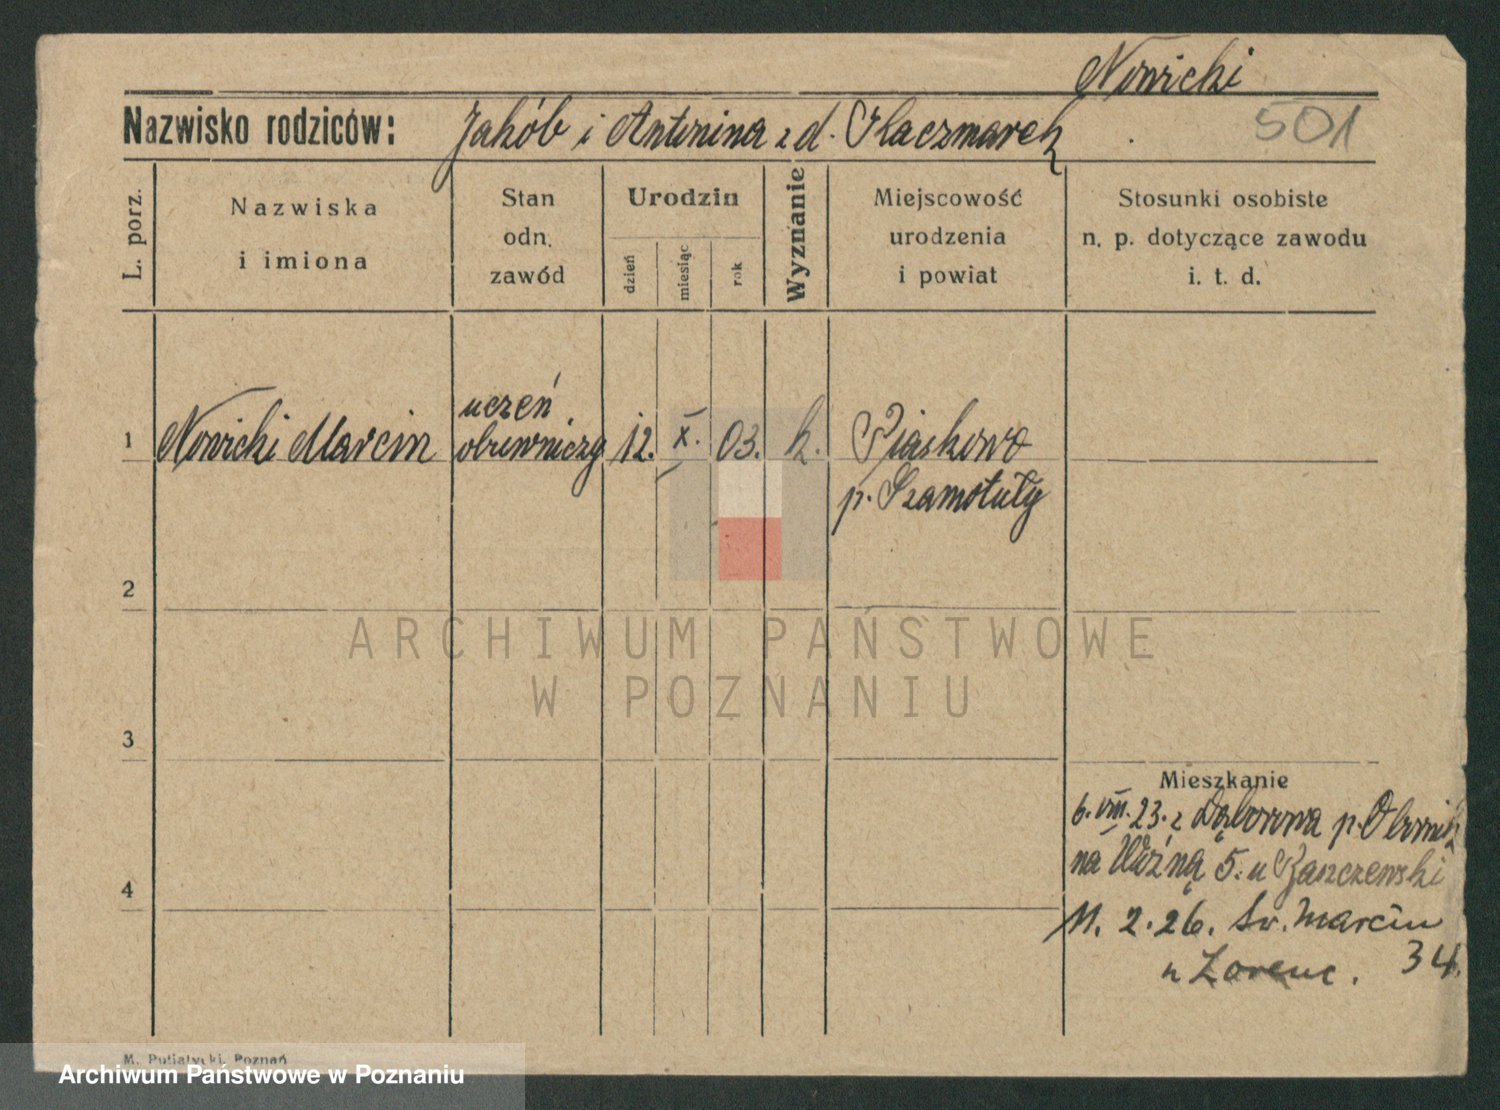 Nowicki
Nazwisko rodziców: Jakób i Antonina z d. Kaczmarek
501
L. porz.
Nazwiska
i imiona
Stan
odn.
zawód
Urodzin
dzień
miesiąc
rok
Wyznanie
Miejscowość
urodzenia
i powiat
Stosunki osobiste
n. p. dotyczące zawodu
i. t. d.
1 Nowicki Marcin
uczeń
obuwniczy
12. X. 03. k.
Piaskowo
p. Szamotuły
2
ARCHIWUM PAŃSTWOWE
W POZNANIU
3
Mieszkanie
6. VIII. 23. z p. Obornik
na Woźną 5. u
4
11. 2. 26. Św. Marcin
34.
u Lorenc.
M. Putiatycki, Poznań
Archiwum Państwowe w Poznaniu